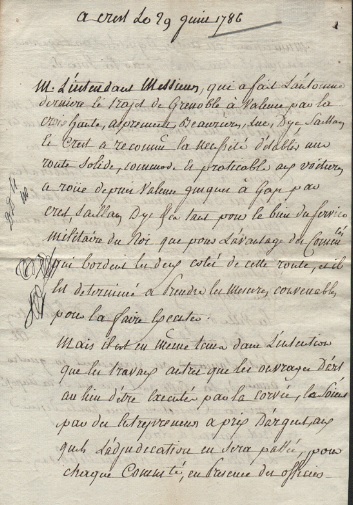 a crest le 29 juin 1786
M. L'intendant Messieurs, qui a fait L'automne
derniere le trajet de Grenoble a Valence par la
croix haute, aspremont, Beaurieres, Luc, Dye, Saillans,
le Crest a reconnu la necessité d'établir une
route solide, commode et praticable aux voitures
a roue depuis Valence jusques à Gap par
crest saillans Dye &a tant pour le bien du service
militaire du Roi que pour L'avantage des Commtés
qui bordent les deux cotés de cette route, et il
est determiné a prendre les mesures convenables
pour la faire executer.
Mais il est en meme tems dans L'intention
que les travaux autres que les ouvrages d'art
au lieu d'être executés par la corvée, la soient
par des Entrepreneurs a prix D'argent, aux
quels L'adjudecation en sera passée, pour
chaque Commté, en presence des officiers